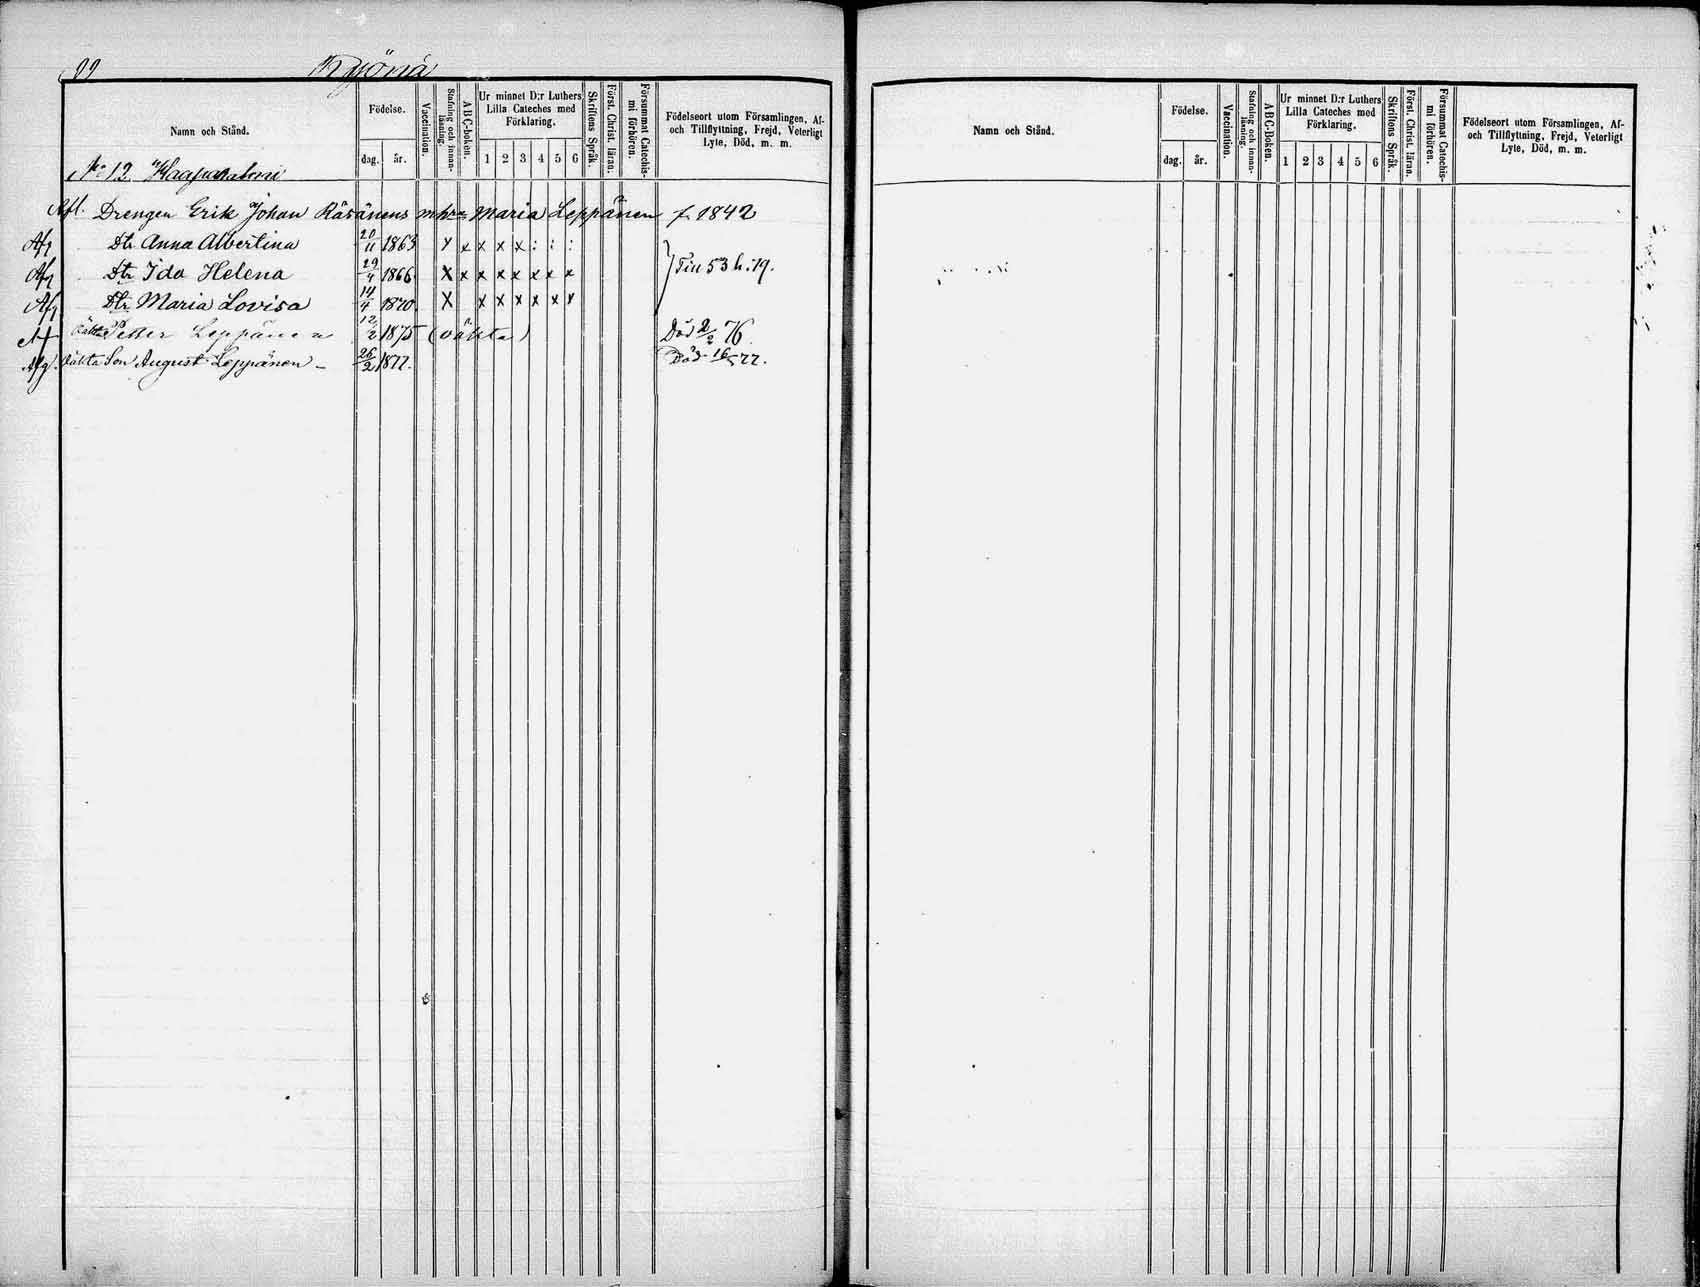 99 Ryönä
Namn och Stånd.
Födelse.
dag. år.
Vaccination.
Stafning och innan-läsning.
ABC-boken.
Ur minnet D:r Luthers Lilla Cateches med Förklaring.
1 2 3 4 5 6
Skriftens Språk.
Först. Christ. läran.
Försummat Catechis-mi förhören.
Födelseort utom Församlingen, Af- och Tillflyttning, Frejd, Veterligt Lyte, Död, m. m.
No 12 Haapaniemi
Afl. Drengen Erik Johan Räsänens Maria Leppänen f. 1842
Afg Dtr Anna Albertina 20/11 1863 x x x x x : : :
Afg Dtr Ida Helena 29/4 1866 x x x x x x x x } Fin 53 h. 19.
Afg Dtr Maria Lovisa 14/4 1870 x x x x x x x
Oäkta Petter Leppänen 12/2 1875 (oäkta) Död 2/2 76
Afg. Oäkta Son August Leppänen - 26/2 1877. Död 16/5 77.
Namn och Stånd.
Födelse.
dag. år.
Vaccination.
Stafning och innan-läsning.
ABC-Boken.
Ur minnet D:r Luthers Lilla Cateches med Förklaring.
1 2 3 4 5 6
Skriftens Språk.
Först. Christ. läran.
Försummat Catechis-mi förhören.
Födelseort utom Församlingen, Af- och Tillflyttning, Frejd, Veterligt Lyte, Död, m. m.